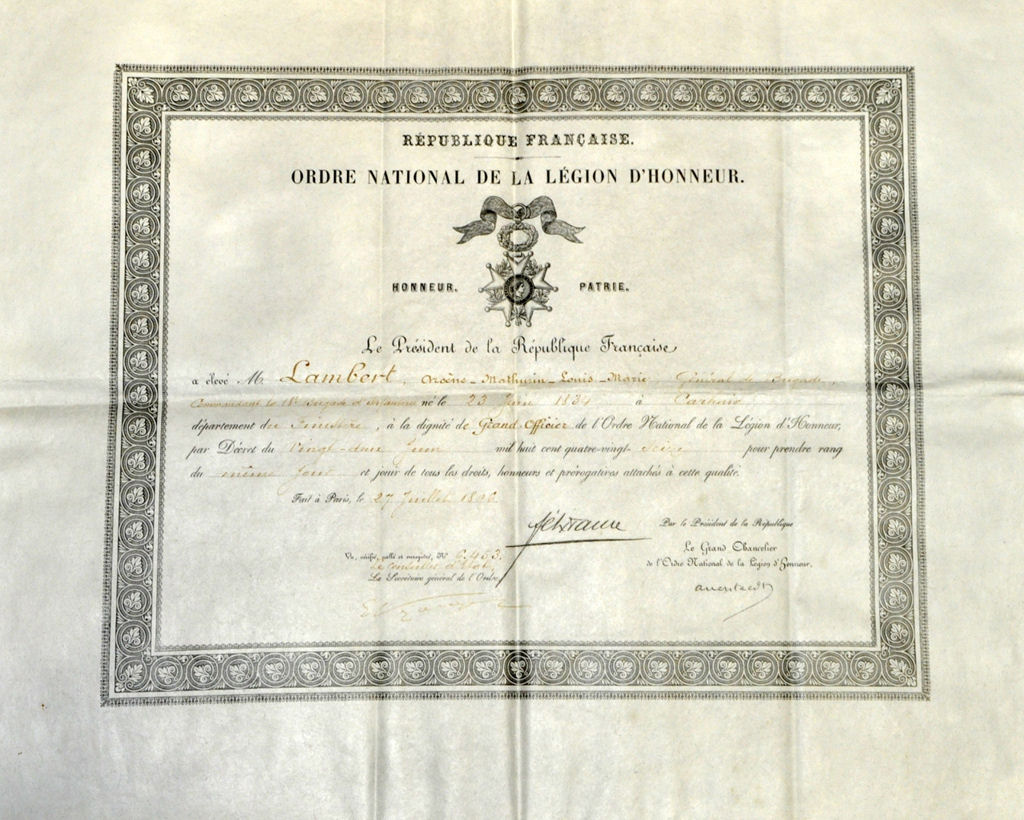 RÉPUBLIQUE FRANÇAISE.
ORDRE NATIONAL DE LA LÉGION D'HONNEUR.
HONNEUR. PATRIE.
Le Président de la République Française
a élevé M. Lambert, Arsène-Mathurin-Louis-Marie, Général de Brigade,
Commandant la Brigade d'Infanterie né le 23 Juin 1834 à
département du Finistère, à la dignité de Grand Officier de l'Ordre National de la Légion d'Honneur,
par Décret du Vingt-deux Juin mil huit cent quatre-vingt-seize pour prendre rang
du même jour et jouir de tous les droits, honneurs et prérogatives attachés à cette qualité.
Fait à Paris, le 27 Juillet 1896
Par le Président de la République
Le Grand Chancelier
de l'Ordre National de la Légion d'Honneur.
Vu, vérifié, scellé et enregistré, N° 6,453
Le Conseiller d'Etat,
Le Secrétaire général de l'Ordre,